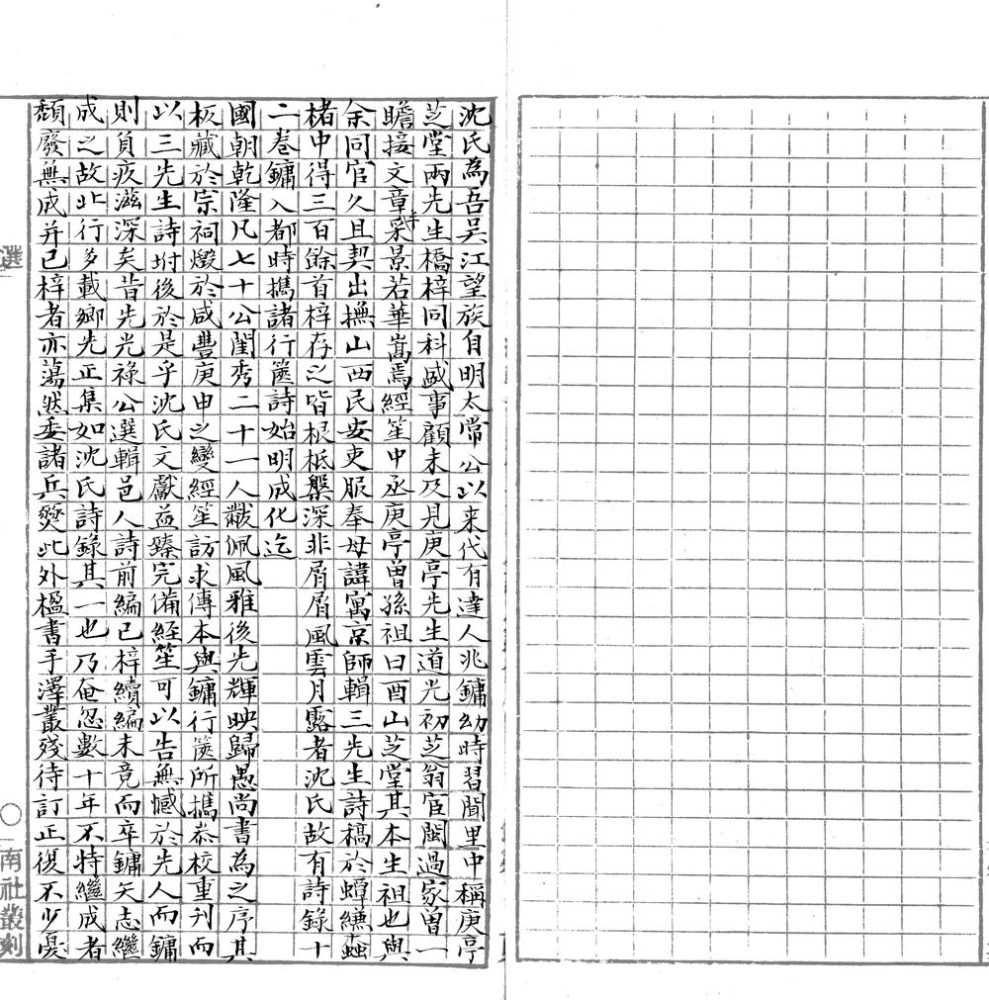 沈氏為吾吳江望族自明太常公以来代有達人兆鏞幼時習聞里中稱庚亭
芝堂兩先生橋梓同科盛事顧未及見庚亭先生道光初芝翁官閩過家曾一
瞻接文章丰采景若華嵩焉經笙中丞庚亭曾孫祖曰酉山芝堂其本生祖也與
余同官久且契出撫山西民安吏服奉母諱寓京師輯三先生詩稿於蟫縑蟲
楮中得三百餘首梓存之皆根柢槃深非屑屑風雲月露者沈氏故有詩錄十
二卷鏞入都時攜諸行篋詩始明成化迄
國朝乾隆凡七十公閨秀二十一人黻佩風雅後先輝映歸愚尚書為之序其
板藏於宗祠燬於咸豐庚申之變經笙訪求傳本與鏞行篋所攜叅校重刋而
以三先生詩坿後於是乎沈氏文獻益臻完備經笙可以告無憾於先人而鏞
則負疚滋深矣昔先光祿公選輯邑人詩前編已梓續編未竟而卒鏞矢志繼
成之故北行多載鄉先正集如沈氏詩錄其一也乃奄忽數十年不特繼成者
頽廢無成并已梓者亦蕩然委諸兵燹此外楹書手澤叢殘待訂正復不少憂
選
〇
南社叢刻